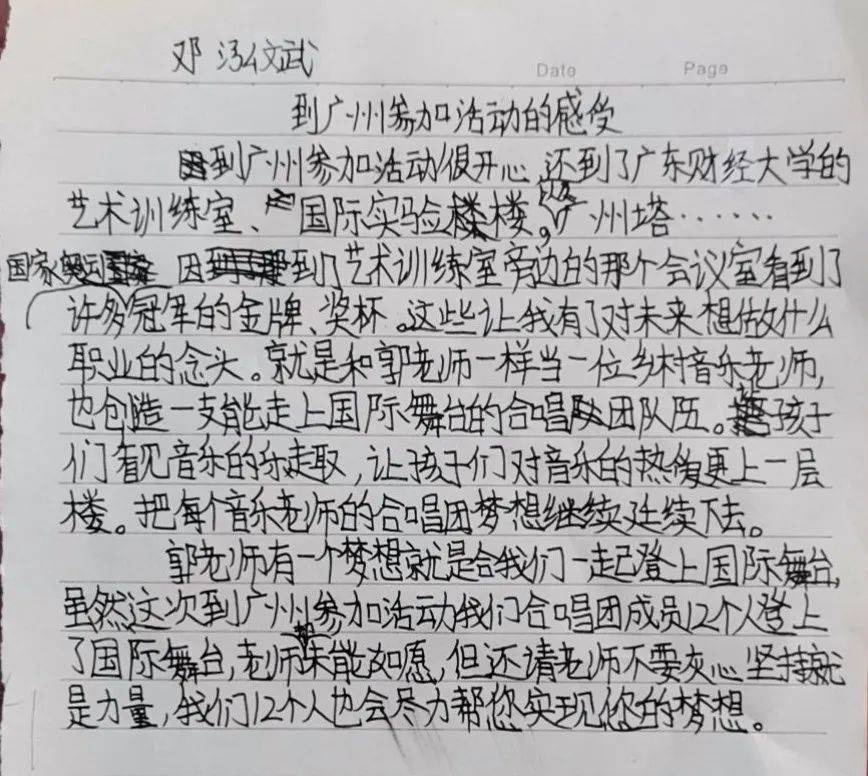 邓泓文武
Date Page
到广州参加活动的感受
到广州参加活动很开心,还到了广东财经大学的
艺术训练室、国际实验楼。广州塔……
国家 因到了艺术训练室旁边的那个会议室看到了
许多冠军的金牌、奖杯。这些让我有了对未来想做什么
职业的念头。就是和郭老师一样当一位乡村音乐老师,
也创造一支能走上国际舞台的合唱团队伍。让孩子
们看见音乐的乐趣,让孩子们对音乐的热度更上一层
楼。把每个音乐老师的合唱团梦想继续延续下去。
郭老师有一个梦想就是合我们一起登上国际舞台,
虽然这次到广州参加活动我们合唱团成员12个人登上
了国际舞台,老师却未能如愿,但还请老师不要灰心坚持就
是力量,我们12个人也会尽力帮您实现您的梦想。